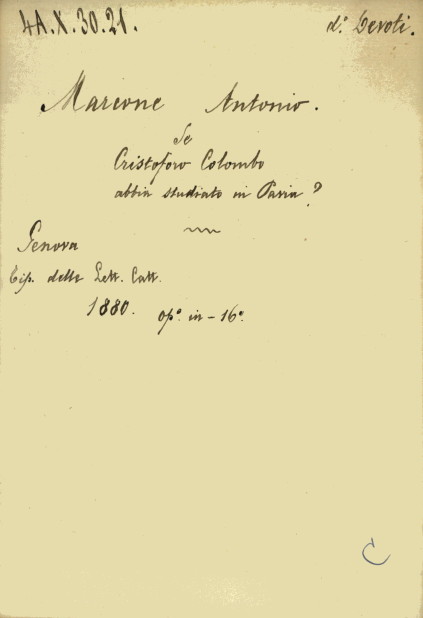 4A.X.30.21.
d.º Devoti.
Marcone Antonio.
Se
Cristoforo Colombo
abbia studiato in Pavia?
Genova
Tip. delle Lett. Catt.
1880. op.º in-16º.
C